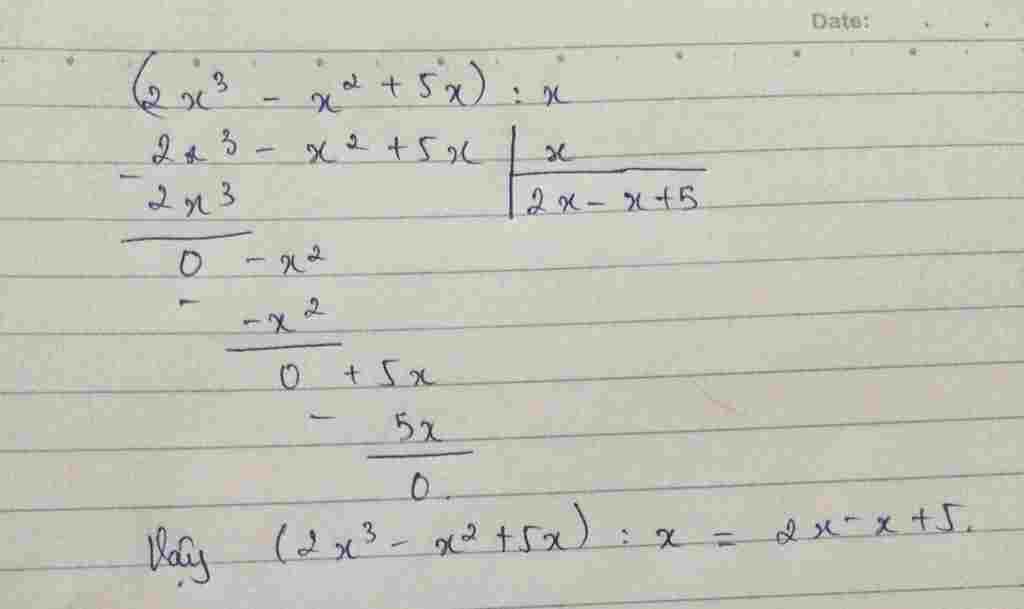 Date:
(2x³ - x² + 5x) : x
2x³ - x² + 5x | x
- 2x³ | 2x - x + 5
0 - x²
- -x²
0 + 5x
- 5x
0.
Vậy (2x³ - x² + 5x) : x = 2x - x + 5.